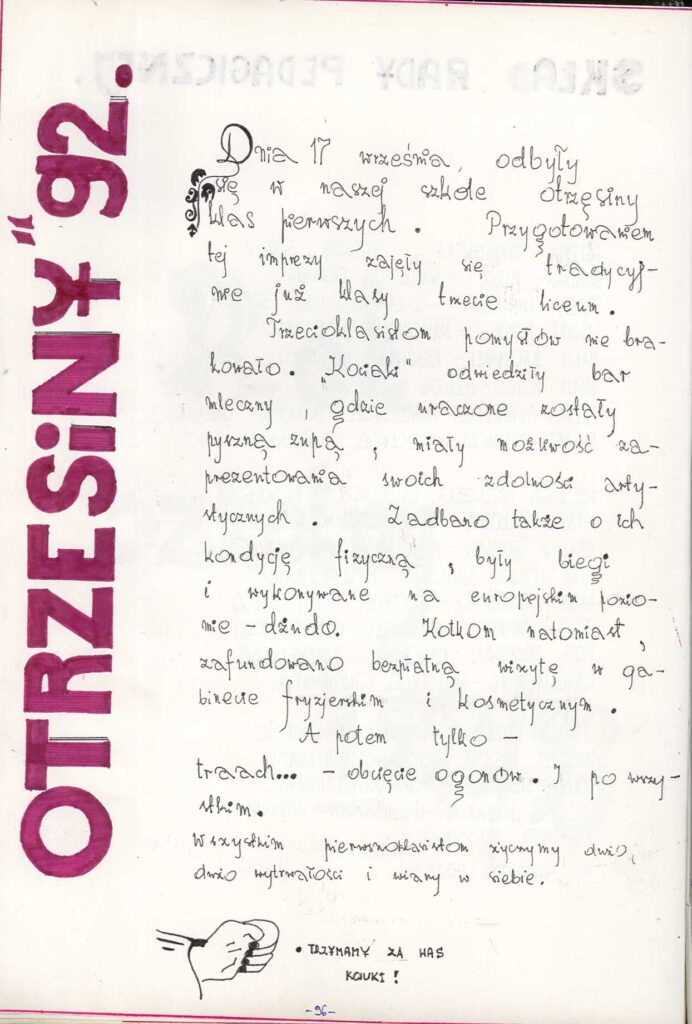 OTRZĘSINY "92.
Dnia 17 września, odbyły
się w naszej szkole otrzęsiny
klas pierwszych. Przygotowaniem
tej imprezy zajęły się tradycyj-
nie już klasy trzecie liceum.
Trzecioklasistom pomysłów nie bra-
kowało. "Kociaki" odwiedziły bar
mleczny, gdzie uraczone zostały
pyszną zupą, miały możliwość za-
prezentowania swoich zdolności arty-
stycznych. Zadbano także o ich
kondycję fizyczną, były biegi
i wykonywane na europejskim pozio-
mie - dżudo. Kotkom natomiast,
zafundowano bezpłatną wizytę w ga-
binecie fryzjerskim i kosmetycznym.
A potem tylko -
traach... - obcięcie ogonów. I po wszy-
stkim.
Wszystkim pierwszoklasistom życzymy dużo,
dużo wytrwałości i wiary w siebie.
• TRZYMAMY ZA WAS
KCIUKI!
-96-
SKŁAD RADY PEDAGICZNEJ.